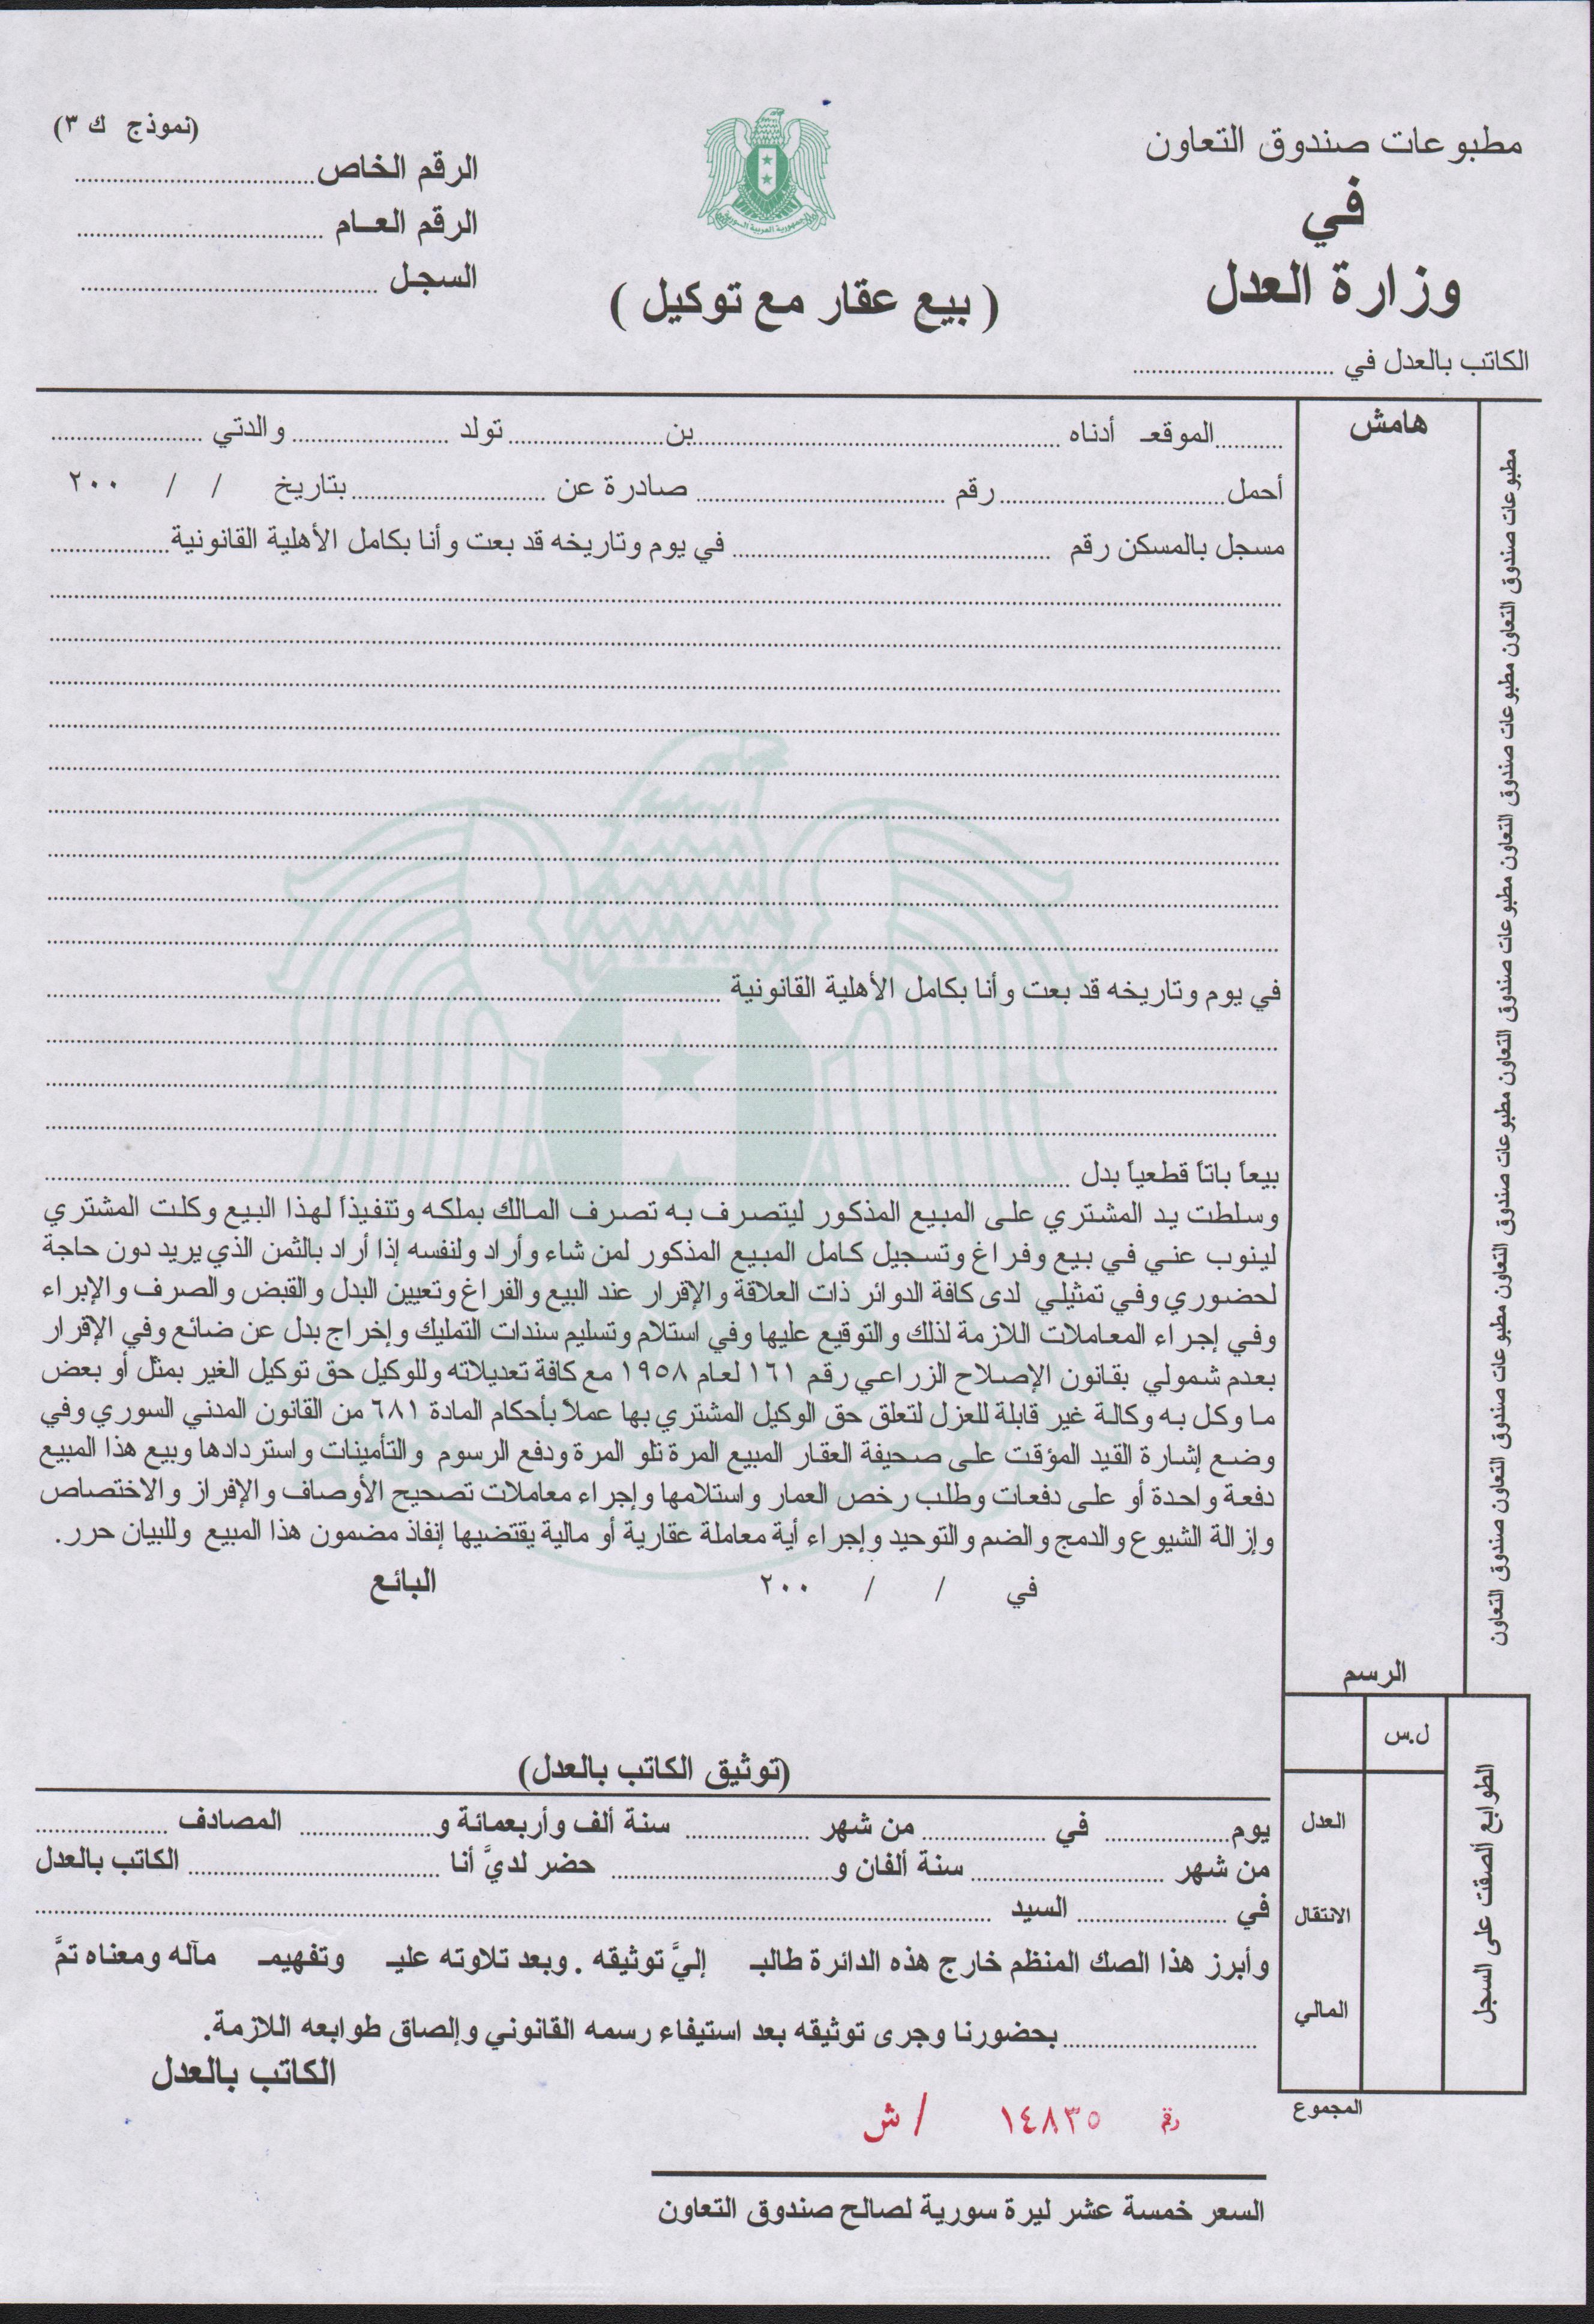 مطبوعات صندوق التعاون
في
وزارة العدل
الكاتب بالعدل في ..............................
الجمهورية العربية السورية
( بيع عقار مع توكيل )
(نموذج ك ٣)
الرقم الخاص..............................
الرقم العـام ..............................
السجـل ..............................
هامش
مطبوعات صندوق التعاون مطبوعات صندوق التعاون مطبوعات صندوق التعاون مطبوعات صندوق التعاون مطبوعات صندوق التعاون مطبوعات صندوق التعاون صندوق التعاون
..........الموقعـ أدناه ..............................بن....................تولد ....................والدتي ....................
أحمل..............................رقم ..............................صادرة عن ....................بتاريخ / / ٢٠٠
مسجل بالمسكن رقم .............................. في يوم وتاريخه قد بعت وأنا بكامل الأهلية القانونية....................
في يوم وتاريخه قد بعت وأنا بكامل الأهلية القانونية ..............................
بيعاً باتاً قطعياً بدل ..............................
وسلطت يد المشتري على المبيع المذكور ليتصرف به تصرف المالك بملكه وتنفيذاً لهذا البيع وكلت المشتري
لينوب عني في بيع وفراغ وتسجيل كامل المبيع المذكور لمن شاء وأراد ولنفسه إذا أراد بالثمن الذي يريد دون حاجة
لحضوري وفي تمثيلي لدى كافة الدوائر ذات العلاقة والإقرار عند البيع والفراغ وتعيين البدل والقبض والصرف والإبراء
وفي إجراء المعاملات اللازمة لذلك والتوقيع عليها وفي استلام وتسليم سندات التمليك وإخراج بدل عن ضائع وفي الإقرار
بعدم شمولي بقانون الإصلاح الزراعي رقم ١٦١ لعام ١٩٥٨ مع كافة تعديلاته وللوكيل حق توكيل الغير بمثل أو بعض
ما وكل به وكالة غير قابلة للعزل لتعلق حق الوكيل المشتري بها عملاً بأحكام المادة ٦٨١ من القانون المدني السوري وفي
وضع إشارة القيد المؤقت على صحيفة العقار المبيع المرة تلو المرة ودفع الرسوم والتأمينات واستردادها وبيع هذا المبيع
دفعة واحدة أو على دفعات وطلب رخص العمار واستلامها وإجراء معاملات تصحيح الأوصاف والإفراز والاختصاص
وإزالة الشيوع والدمج والضم والتوحيد وإجراء أية معاملة عقارية أو مالية يقتضيها إنفاذ مضمون هذا المبيع وللبيان حرر.
في / / ٢٠٠ البائع
الرسم
ل.س
العدل
الانتقال
المالي
المجموع
الطوابع ألصقت على السجل
(توثيق الكاتب بالعدل)
يوم.................... في ....................من شهر .................... سنة ألف وأربعمائة و.................... المصادف ....................
من شهر ....................سنة ألفان و.................... حضر لديَّ أنا .................... الكاتب بالعدل
في .................... السيد ..............................
وأبرز هذا الصك المنظم خارج هذه الدائرة طالبـ إليَّ توثيقه . وبعد تلاوته عليـ وتفهيمـ مآله ومعناه تمَّ
....................بحضورنا وجرى توثيقه بعد استيفاء رسمه القانوني وإلصاق طوابعه اللازمة.
الكاتب بالعدل
رقم ١٤٨٣٥ / ش
السعر خمسة عشر ليرة سورية لصالح صندوق التعاون